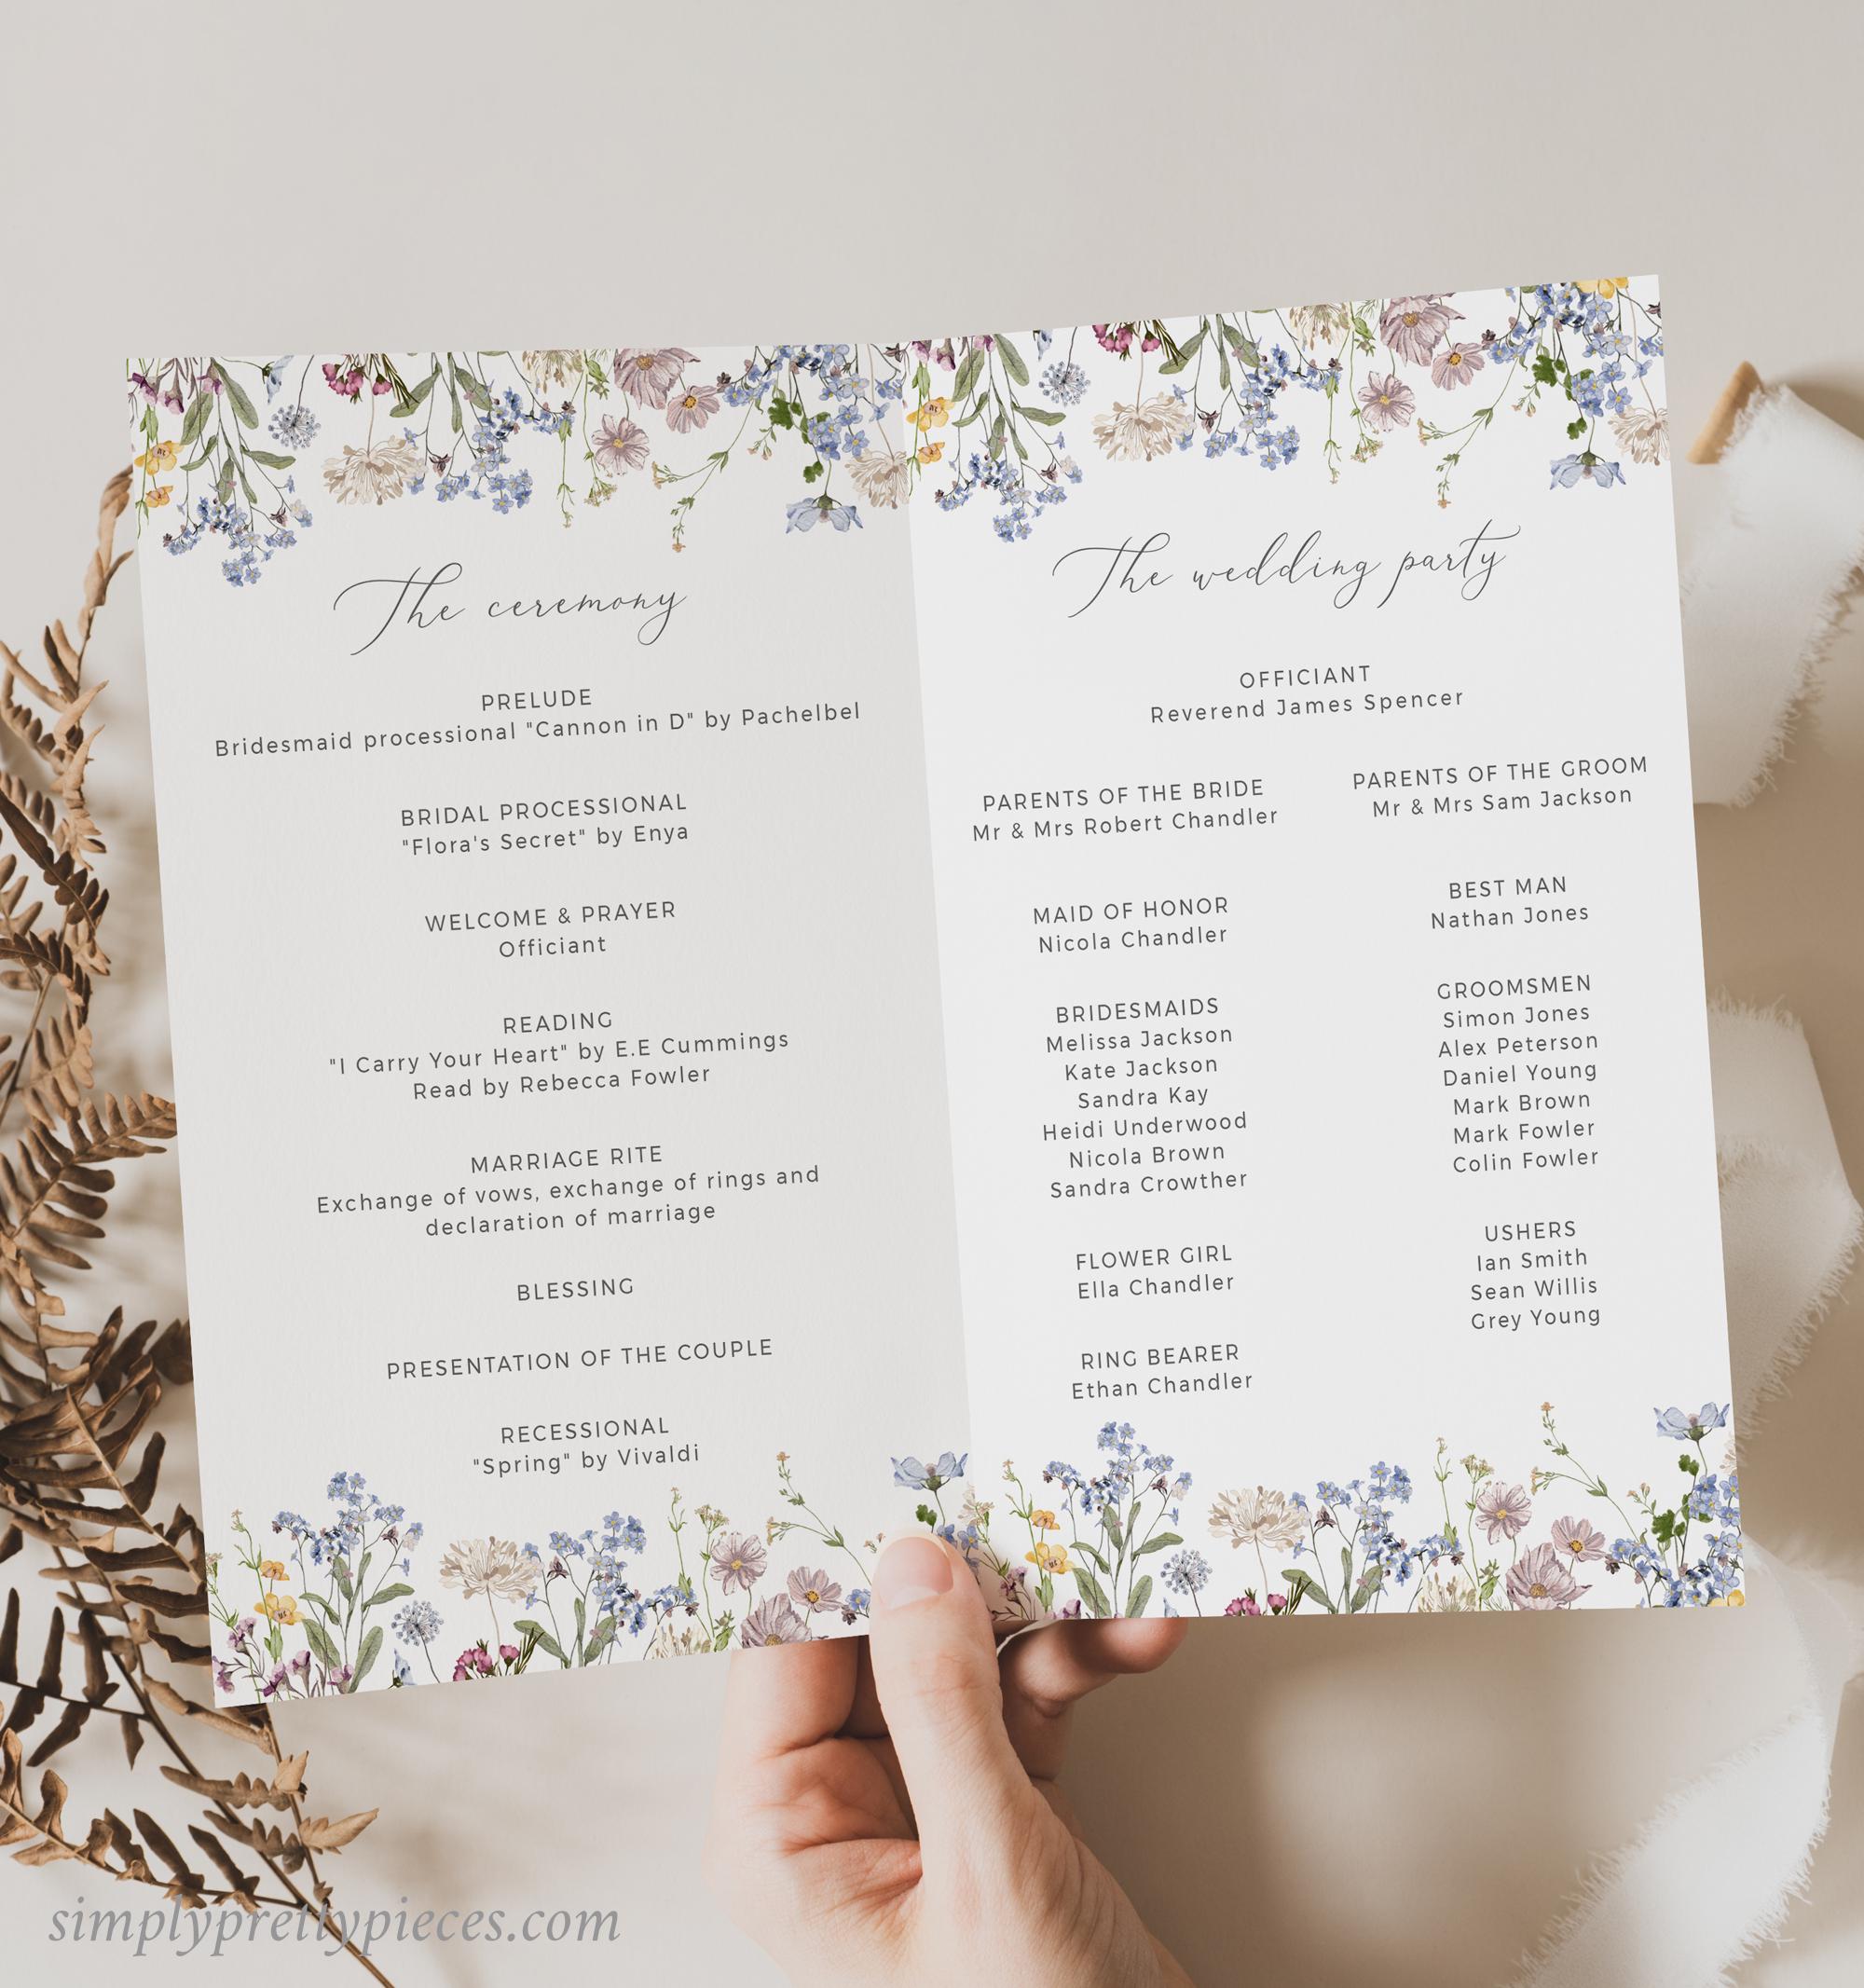 The ceremony
PRELUDE
Bridesmaid processional "Cannon in D" by Pachelbel
BRIDAL PROCESSIONAL
"Flora's Secret" by Enya
WELCOME & PRAYER
Officiant
READING
"I Carry Your Heart" by E.E Cummings
Read by Rebecca Fowler
MARRIAGE RITE
Exchange of vows, exchange of rings and
declaration of marriage
BLESSING
PRESENTATION OF THE COUPLE
RECESSIONAL
"Spring" by Vivaldi
The wedding party
OFFICIANT
Reverend James Spencer
PARENTS OF THE BRIDE
Mr & Mrs Robert Chandler
MAID OF HONOR
Nicola Chandler
BRIDESMAIDS
Melissa Jackson
Kate Jackson
Sandra Kay
Heidi Underwood
Nicola Brown
Sandra Crowther
FLOWER GIRL
Ella Chandler
RING BEARER
Ethan Chandler
PARENTS OF THE GROOM
Mr & Mrs Sam Jackson
BEST MAN
Nathan Jones
GROOMSMEN
Simon Jones
Alex Peterson
Daniel Young
Mark Brown
Mark Fowler
Colin Fowler
USHERS
Ian Smith
Sean Willis
Grey Young
simplyprettypieces.com